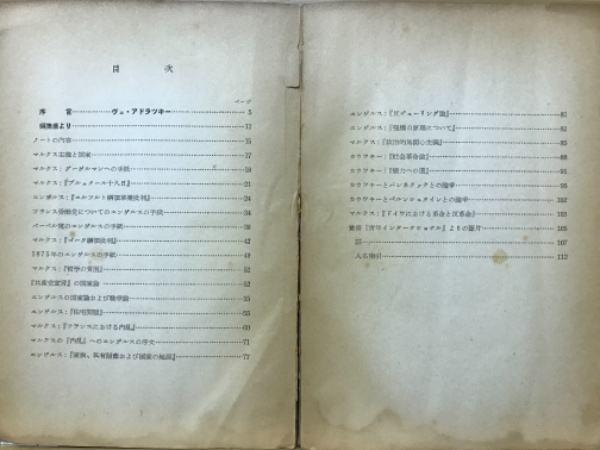 目次
ページ
序言 ヴェ・アドラツキー 5
編集者より 12
ノートの内容 15
マルクス主義と国家 17
マルクス：クーゲルマンへの手紙 19
マルクス：『ブリュメール十八日』 21
エンゲルス：『エルフルト綱領草案批判』 24
フランス労働党についてのエンゲルスの手紙 34
ベーベル宛のエンゲルスの手紙 38
マルクス：『ゴータ綱領批判』 42
1875年のエンゲルスの手紙 49
マルクス：『哲学の貧困』 52
『共産党宣言』の国家論 52
エンゲルスの国家論および戦争論 55
エンゲルス：『住宅問題』 55
マルクス：『フランスにおける内乱』 60
マルクスの『内乱』へのエンゲルスの序文 71
エンゲルス：『家族、私有財産および国家の起源』 77
エンゲルス：『反デューリング論』 81
エンゲルス：『権威の原理について』 82
マルクス：『政治的無関心主義』 85
カウツキー：『社会革命論』
カウツキー：『権力への道』
カウツキーとパンネクックとの論争
カウツキーとベルンシュタインとの論争
マルクス：『ドイツにおける革命と反革命』 103
より の断片 105
註 107
人名索引 112